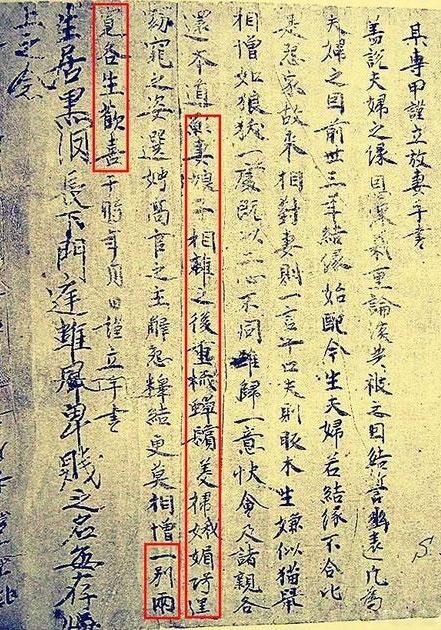 某專甲謹立放妻手書
蓋說夫婦之緣恩深義重論談共被之因結誓幽遠凡為
夫婦之因前世三年結緣始配今生夫婦若結緣不合比
是怨家故來相對妻則一言十口夫則販木生嫌似猫鼠
相憎如狼犺一處既以二心不同難歸一意快會及諸親各
還本道願妻娘子相離之後重梳蟬鬢美掃娥媚巧逞
窈窕之姿選娉高官之主解怨釋結更莫相憎一別兩
寬各生歡喜于時年月日謹立手書
生居黑洞長下門庭雖風卑賤之名無存
上之念
S.